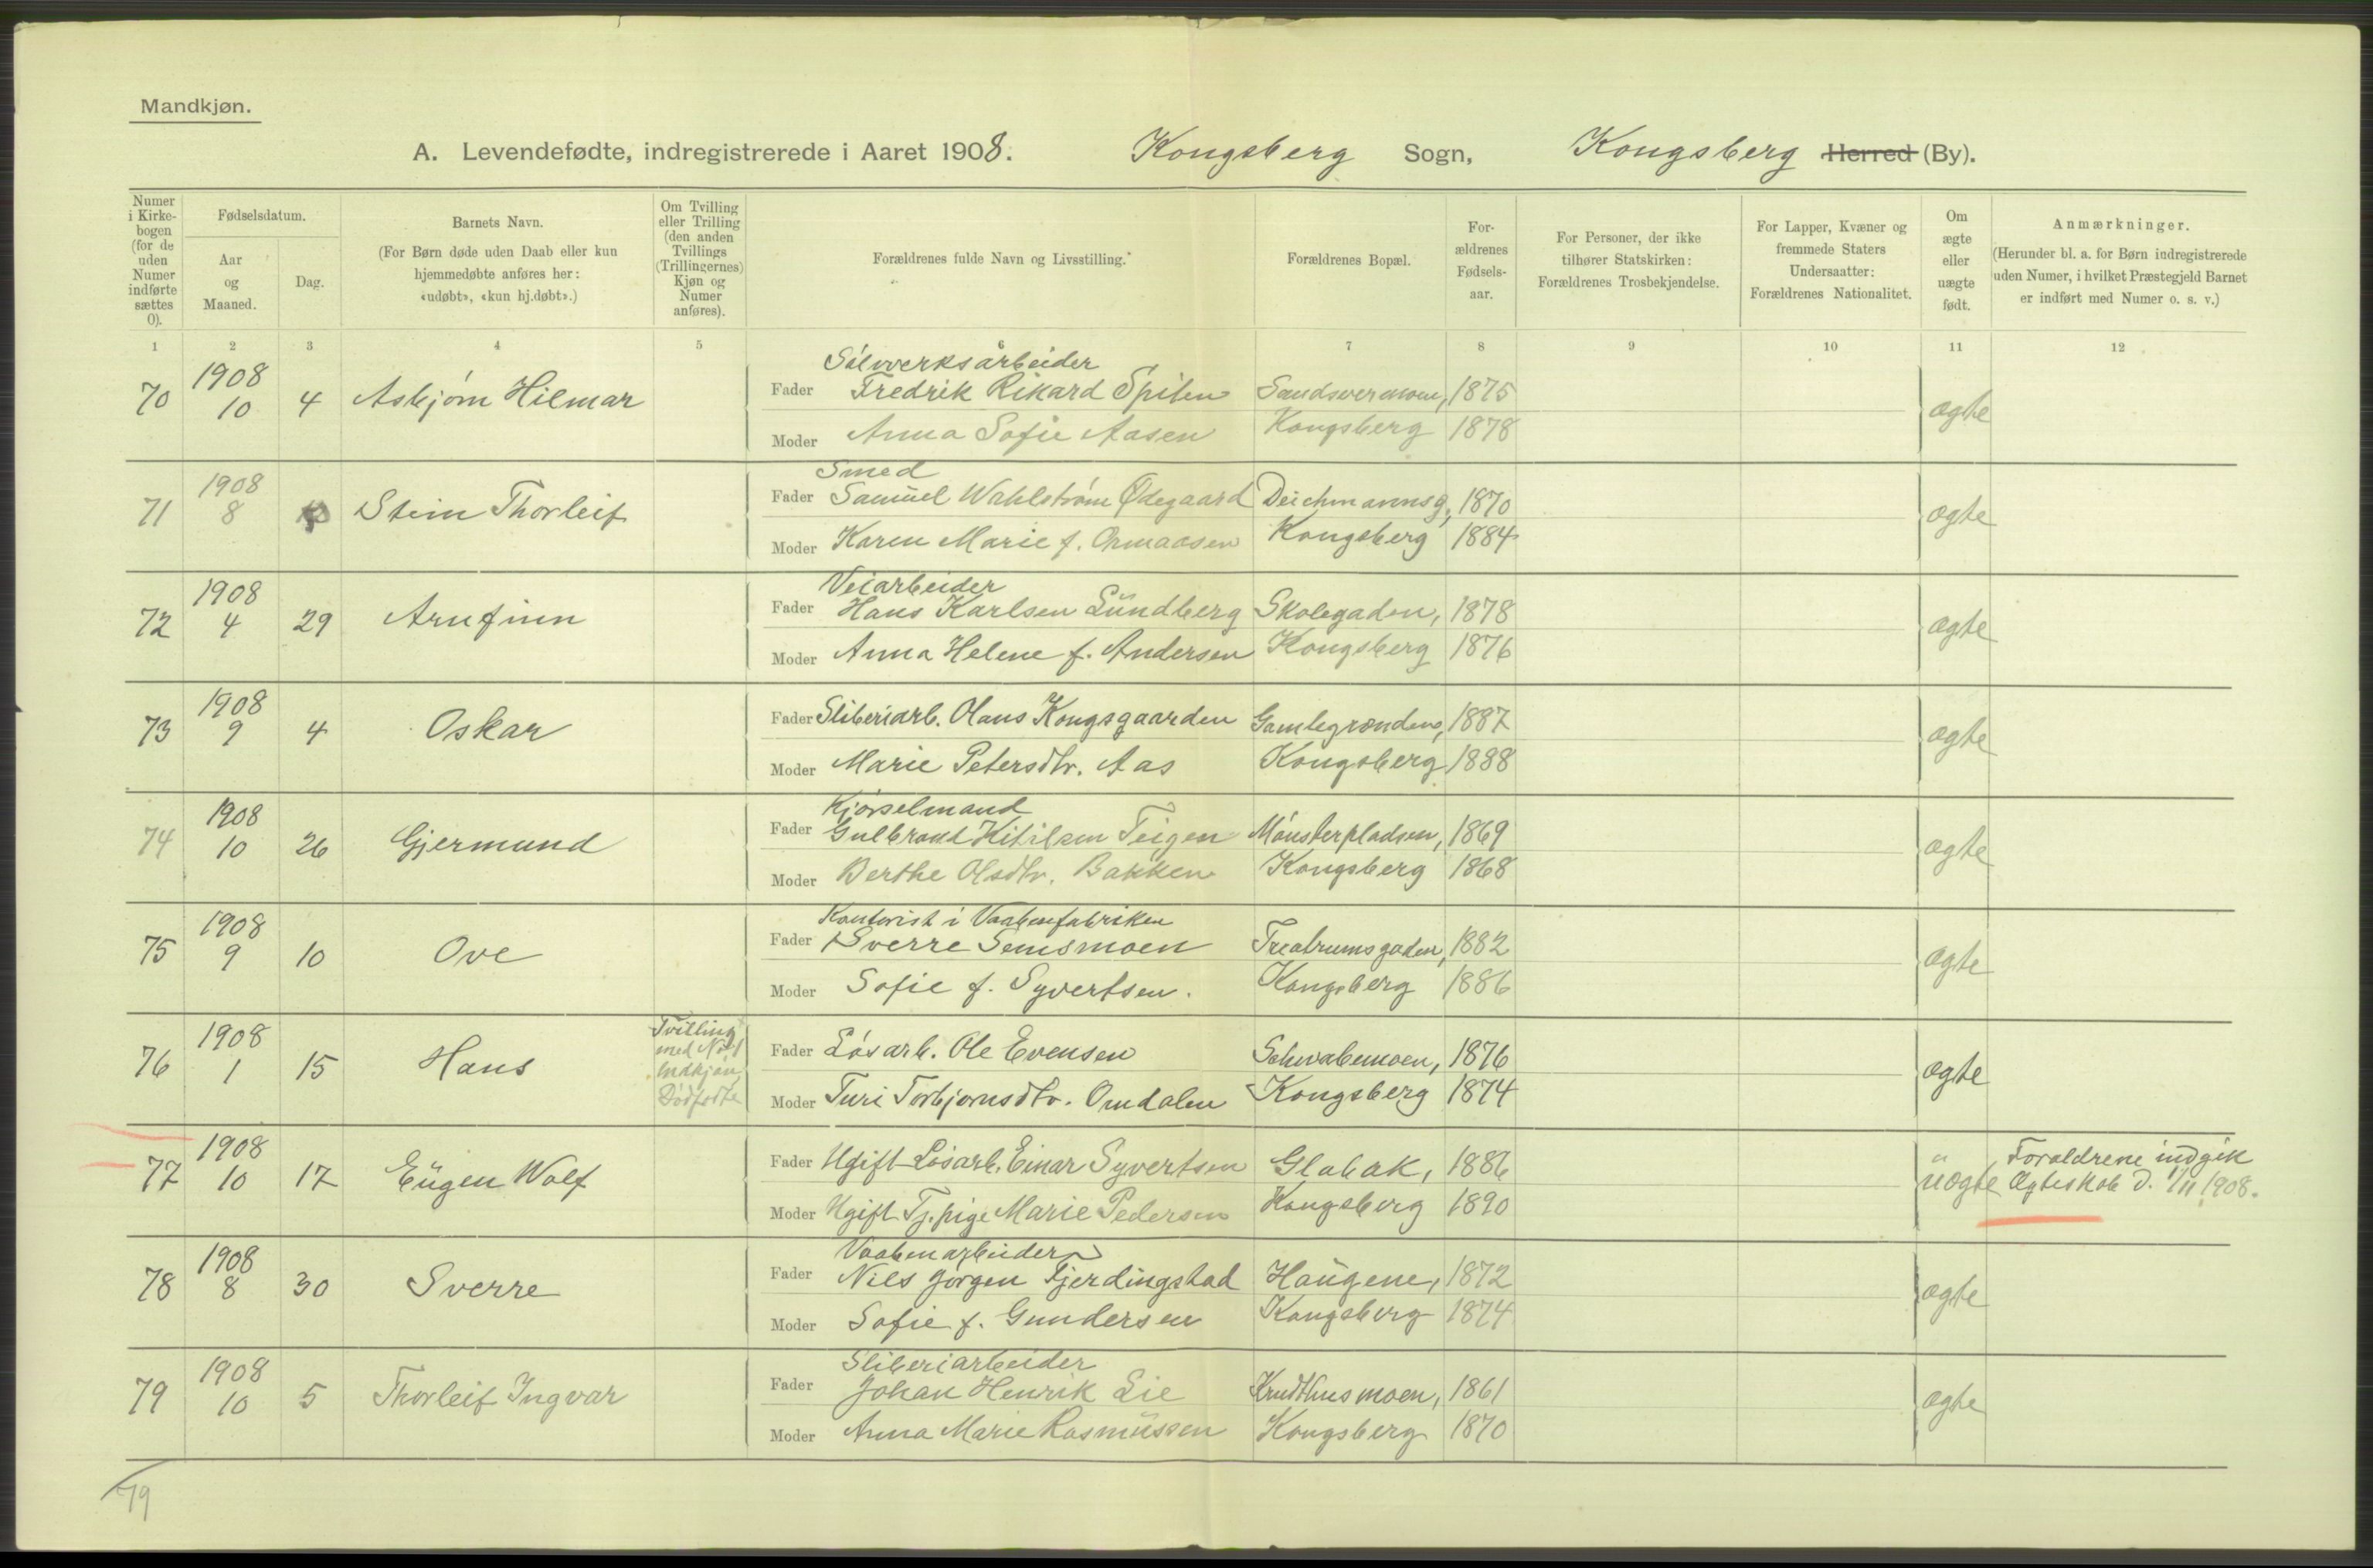 Mandkjøn.
A. Levendefødte, indregistrerede i Aaret 1908. Kongsberg Sogn, Kongsberg Herred (By).
Numer i Kirkebogen (for de uden Numer indførte sættes 0).
Fødselsdatum.
Aar og Maaned.
Dag.
Barnets Navn.
(For Børn døde uden Daab eller kun hjemmedøbte anføres her: «udøbt», «kun hj.døbt».)
Om Tvilling eller Trilling (den anden Tvillings (Trillingernes) Kjøn og Numer anføres).
Forældrenes fulde Navn og Livsstilling.
Forældrenes Bopæl.
Forældrenes Fødselsaar.
For Personer, der ikke tilhører Statskirken: Forældrenes Trosbekjendelse.
For Lapper, Kvæner og fremmede Staters Undersaatter: Forældrenes Nationalitet.
Om ægte eller uægte født.
Anmærkninger.
(Herunder bl. a. for Børn indregistrerede uden Numer, i hvilket Præstegjeld Barnet er indført med Numer o. s. v.)
1 2 3 4 5 6 7 8 9 10 11 12
Sølvverksarbeider
70 1908 10 4 Asbjørn Hilmar Fader Fredrik Rikard Spiten Sandsvermoen, 1875 ægte
Moder Anna Sofie Aasen Kongsberg 1878
Smed
71 1908 8 Stein Thorleif Fader Samuel Wahlstrøm Ødegaard Deichmannsg, 1870 ægte
Moder Karen Marie f. Ormaasen Kongsberg 1884
Veiarbeider
72 1908 4 29 Arnfinn Fader Hans Karlsen Lundberg Skolegaden, 1878 ægte
Moder Anna Helene f. Andersen Kongsberg 1876
73 1908 9 4 Oskar Fader Sliberiarb. Olaus Kongsgaarden Gamlegrænden, 1887 ægte
Moder Marie Petersdtr. Aas Kongsberg 1888
Kjørselmand
74 1908 10 26 Gjermund Fader Gulbrand Kitilsen Teigen Mønsterpladsen, 1869 ægte
Moder Berthe Olsdtr. Bakken Kongsberg 1868
Kontorist i Vaabenfabriken
75 1908 9 10 Ove Fader Sverre Semsmoen Treatrumsgaden, 1882 ægte
Moder Sofie f. Syvertsen. Kongsberg 1886
76 1908 1 15 Hans Tvilling med No 1 Fader Løsarb. Ole Evensen Schwabemoen, 1876 ægte
Dødfødte Moder Turi Torbjørnsdtr. Omdalen Kongsberg 1874
77 1908 10 17 Eugen Wolf Fader Ugift Løsarb. Einar Syvertsen Glabak, 1886 uægte Forældrene indgik Ægteskab d. 1/11 1908.
Moder Ugift Tj.pige Marie Pedersen Kongsberg 1890
Vaabenarbeider
78 1908 8 30 Sverre Fader Nils Jørgen Fjerdingstad Haugene, 1872 ægte
Moder Sofie f. Gundersen Kongsberg 1874
Sliberiarbeider
79 1908 10 5 Thorleif Ingvar Fader Johan Henrik Lie Krudthusmoen, 1861 ægte
Moder Anna Marie Rasmussen Kongsberg 1870
79